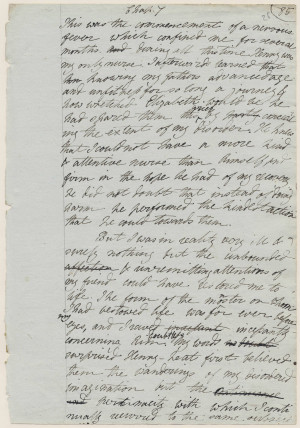 Chap. 7
95
This was the commencement of a nervous
fever which confined me for several
months and during all that time Henry was
my only nurse I afterward learned that
knowing my fathers advanced age
and unfitness for so long a journey &
how wretched Elizabeth would be he
had spared them this grief by
ing the extent of my disorder. He knew
that I could not have a more kind
& attentive nurse than himself and
firm in the hope he had of my recovery
he did not doubt that instead of doing
harm he performed the kindest action
that he could towards them.
But I was in reality very ill &
surely nothing but the unbounded
affection & unremitting attentions of
my friend could have restored me to
life. The form of the monster on whom
I had bestowed life was for ever before
my eyes and I raved incessantly
concerning him. My words
surprised Henry he at first believed
them the wanderings of my disordered
imagination but the
pertinacity with which I conti
nually recurred to the same subject